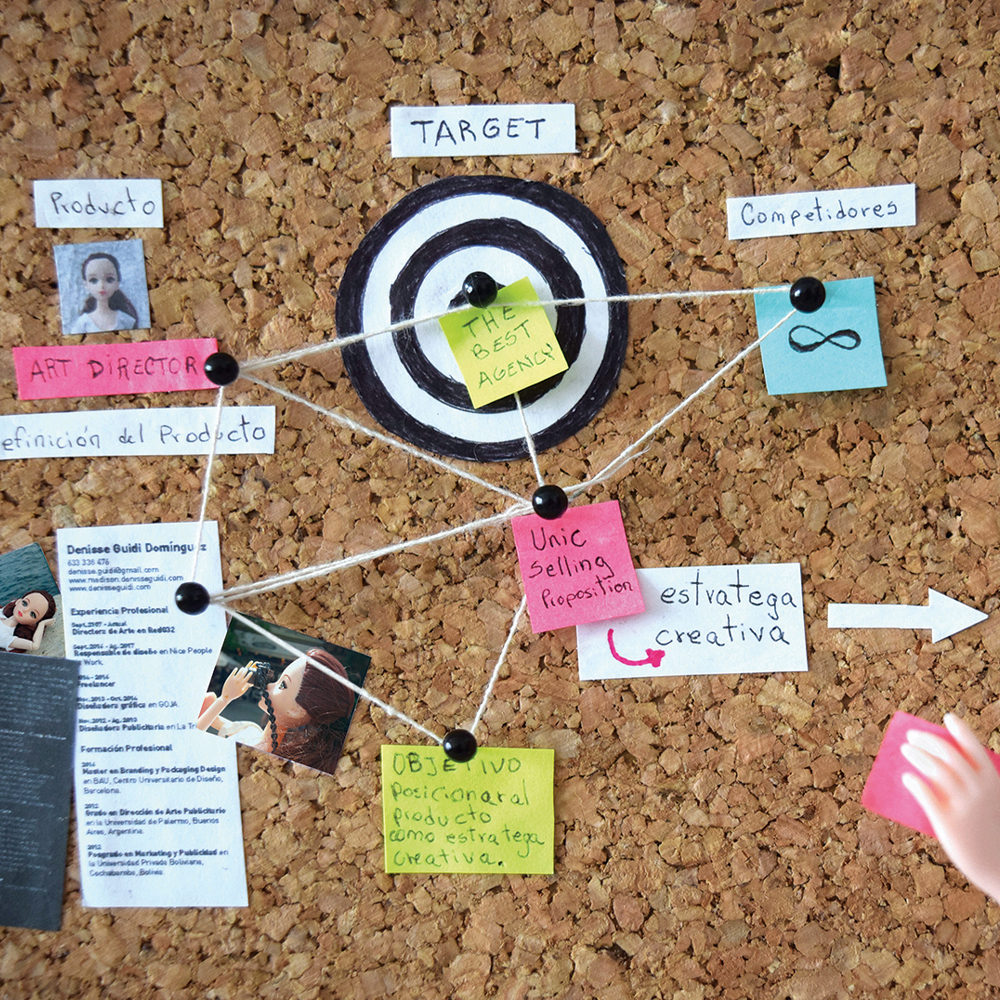 TARGET
Producto
Competidores
THE
BEST
AGENCY
ART DIRECTOR
efinición del Producto
Denisse Guidi Domínguez
633 338 476
denisse.guidi@gmail.com
www.medison.denisseguidi.com
www.denisseguidi.com
Experiencia Profesional
Sept.2017 - Actual
Directora de Arte en Red032
Sept.2016 - Ag.2017
Responsable de diseño en Nice People
Work.
2014 - 2016
Freelancer
Nov.2013 - Oct.2014
Diseñadora gráfica en GOJA
Nov.2012 - Ag.2013
Diseñadora Publicitaria en La
Formación Profesional
2014
Master en Branding y Packaging Design
en BAU, Centro Universitario de Diseño,
Barcelona.
2012
Grado en Dirección de Arte Publicitario
en la Universidad de Palermo, Buenos
Aires, Argentina.
2012
Posgrado en Marketing y Publicidad en
la Universidad Privada Boliviana,
Cochabamba, Bolivia.
Unic
Selling
Proposition
estratega
creativa
OBJETIVO
posicionar al
producto
como estratega
creativa.